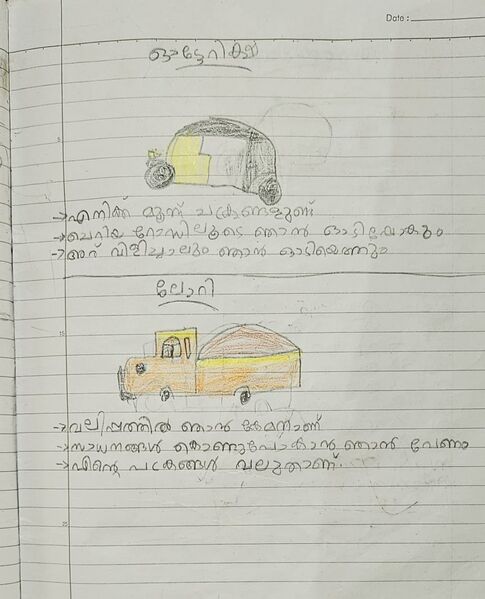 Date :
ഓട്ടോറിക്ഷ
→എനിക്ക് മൂന്ന് ചക്രങ്ങളുണ്ട്
→ചെറിയ റോഡിലൂടെ ഞാൻ ഓടി പോകും
→ആര് വിളിച്ചാലും ഞാൻ ഓടിയെത്തും
ലോറി
→വലിപ്പത്തിൽ ഞാൻ കേമനാണ്
→സാധനങ്ങൾ കൊണ്ടുപോകാൻ ഞാൻ വേണം
→എൻ്റെ ചക്രങ്ങൾ വലുതാണ്.